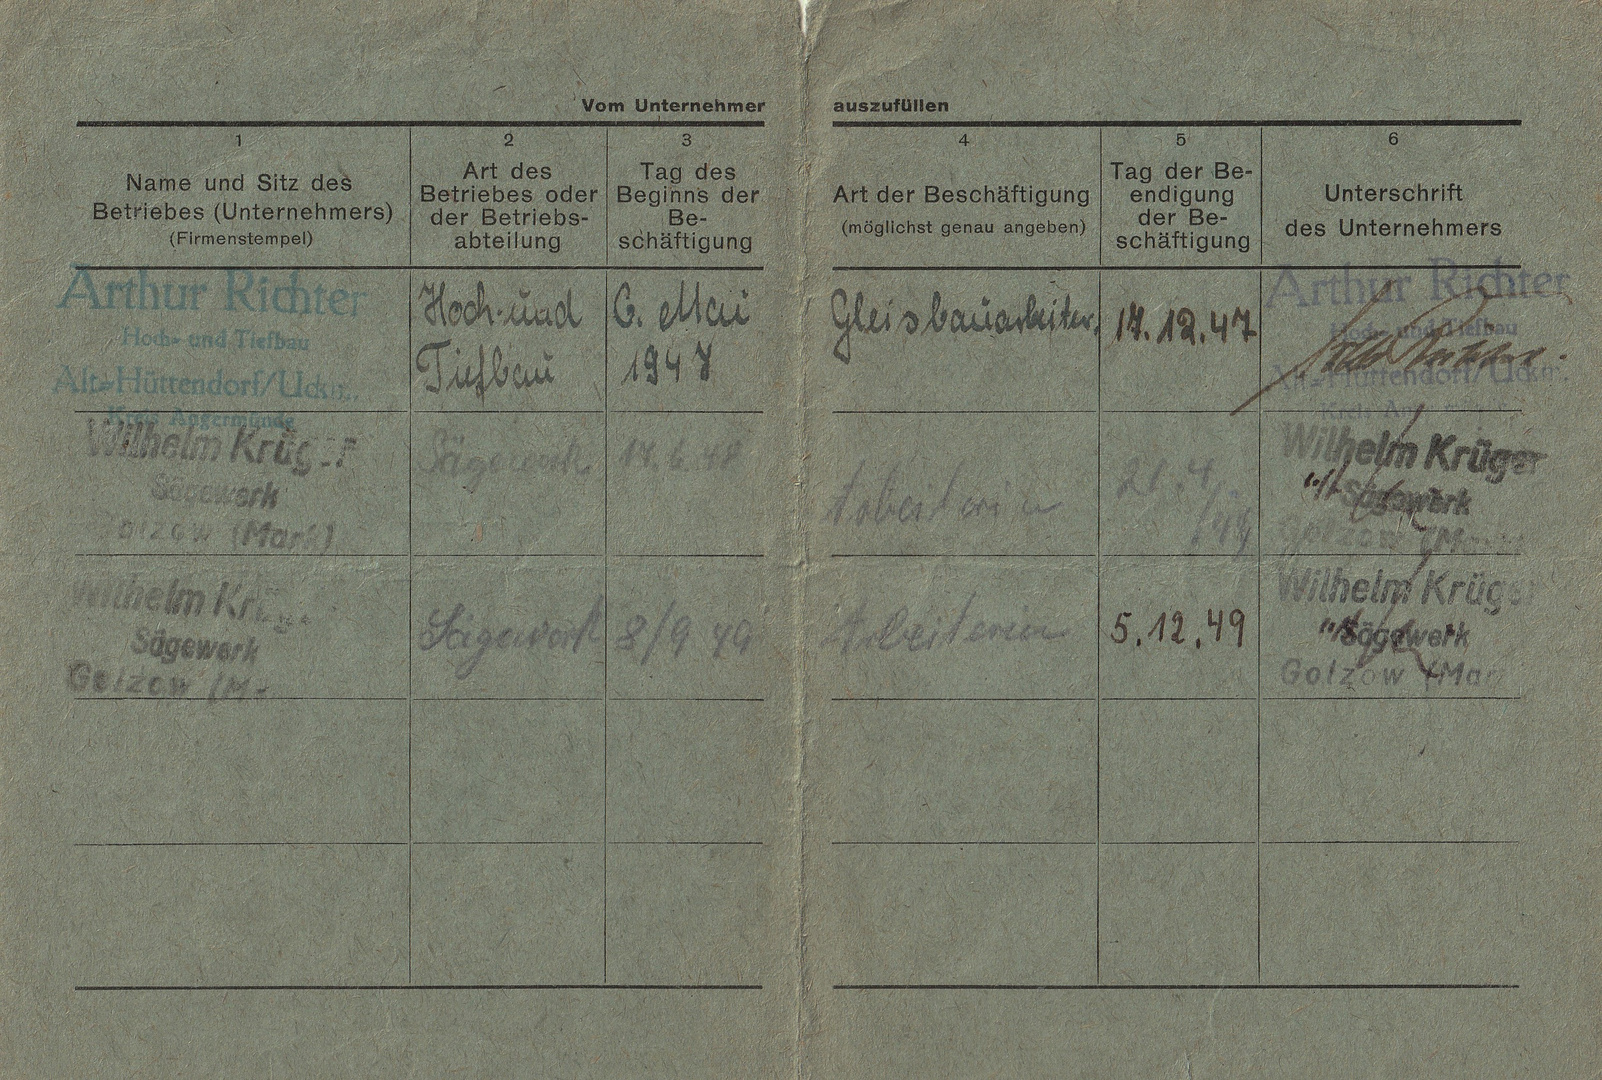 Vom Unternehmer auszufüllen
1
2
3
4
5
6
Name und Sitz des
Betriebes (Unternehmers)
(Firmenstempel)
Art des
Betriebes oder
der Betriebs-
abteilung
Tag des
Beginns der
Be-
schäftigung
Art der Beschäftigung
(möglichst genau angeben)
Tag der Be-
endigung
der Be-
schäftigung
Unterschrift
des Unternehmers
Arthur Richter
Hoch- und Tiefbau
Alt-Hüttendorf/Uckm.
Kreis Angermünde
Hoch- und
Tiefbau
6. Mai
1947
Gleisbauarbeiter.
17.12.47
Arthur Richter
Hoch- und Tiefbau
Alt-Hüttendorf/Uckm.
Kreis
Wilhelm Krüger
Sägewerk
Golzow (Mark)
Sägewerk
17.6.48
Arbeiterin
21.4
Wilhelm Krüger
Sägewerk
Golzow
Wilhelm
Sägewerk
Golzow
Sägewerk
8/9 49
Arbeiterin
5.12.49
Wilhelm Krüger
Sägewerk
Golzow (Mark